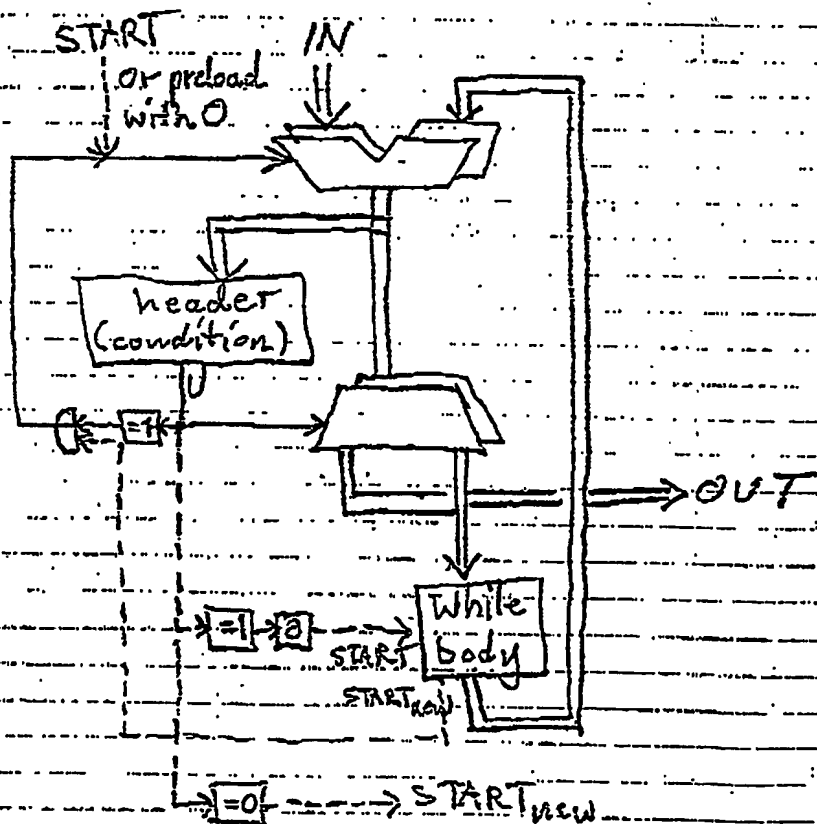 START
IN
or preload
with 0
header
(condition)
=1
OUT
=1
a
While
body
START
START_new
=0
START_new